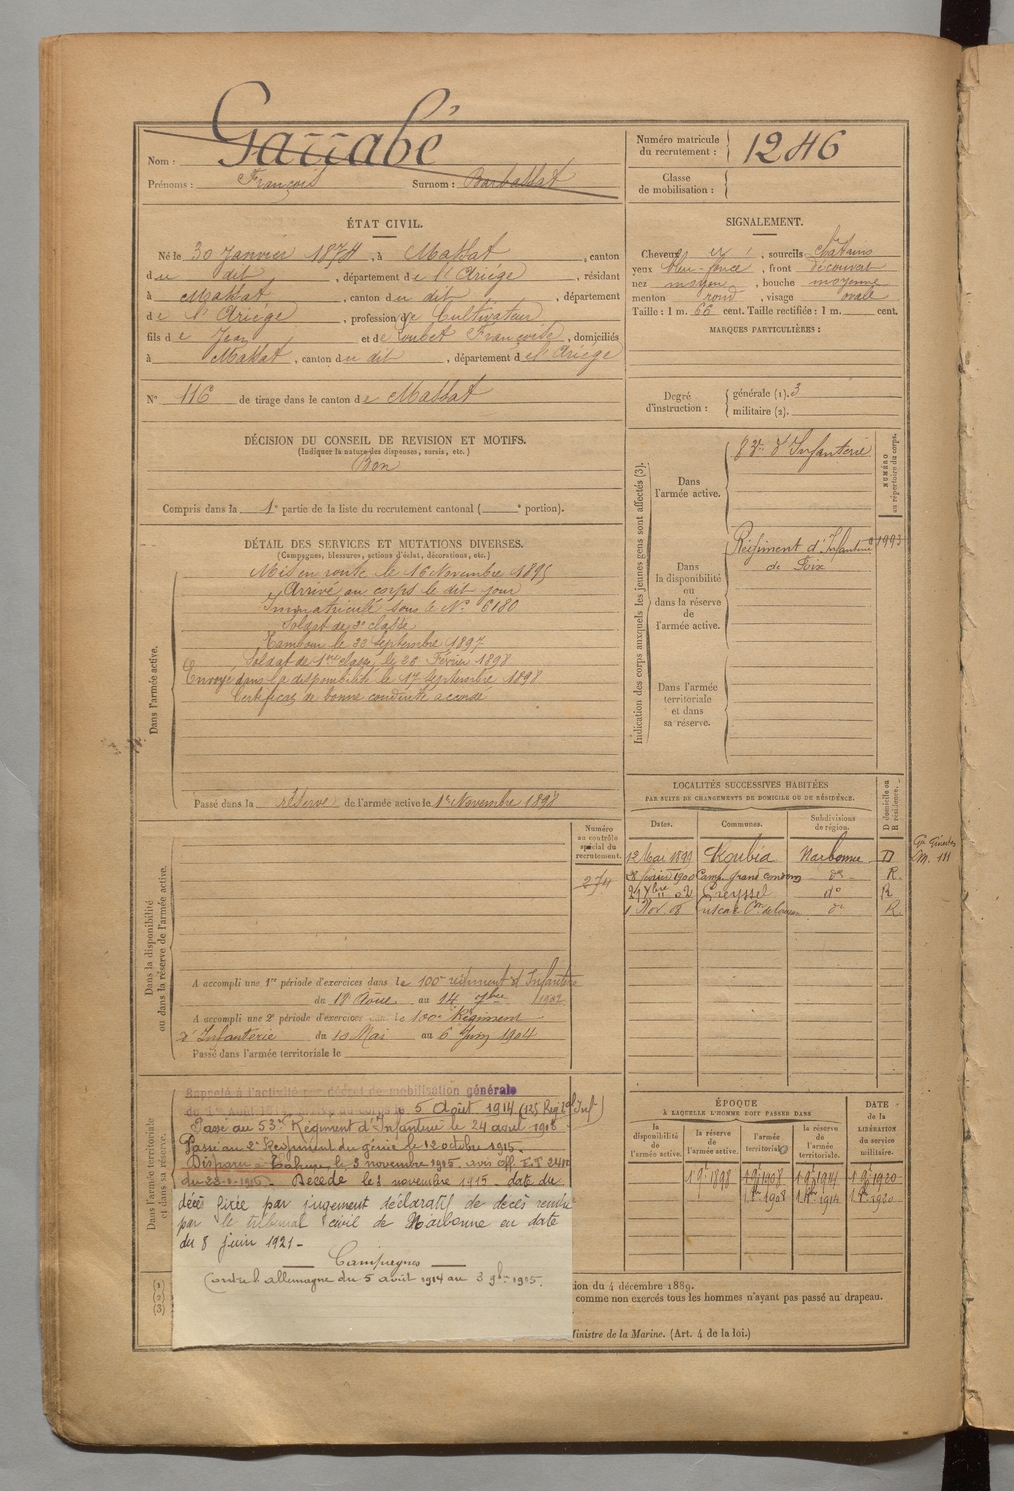 Nom : Garrabé
Prénoms : François Surnom : Barbassat
Numéro matricule du recrutement : 1246
Classe de mobilisation :
ÉTAT CIVIL.
Né le 30 Janvier 1874, à Massat, canton
du dit, département de l'Ariège, résidant
à Massat, canton du dit, département
de l'Ariège, profession de Cultivateur
fils de Jean et de Loubet Françoise, domiciliés
à Massat, canton du dit, département de l'Ariège
N° 116 de tirage dans le canton de Massat
SIGNALEMENT.
Cheveux et, sourcils châtains
yeux bleu-foncé, front découvert
nez moyen, bouche moyenne
menton rond, visage ovale
Taille : 1 m. 66 cent. Taille rectifiée : 1 m. cent.
MARQUES PARTICULIÈRES :
Degré d'instruction : générale (1). 3
militaire (2).
DÉCISION DU CONSEIL DE REVISION ET MOTIFS.
(Indiquer la nature des dispenses, sursis, etc.)
Bon
Compris dans la 1e partie de la liste du recrutement cantonal ( e portion).
DÉTAIL DES SERVICES ET MUTATIONS DIVERSES.
(Campagnes, blessures, actions d'éclat, décorations, etc.)
Dans l'armée active.
Mis en route le 16 Novembre 1895
Arrivé au corps le dit jour
Immatriculé sous le N° 6180
Soldat de 2e classe
Tambour le 20 Septembre 1897
Soldat de 1re classe, le 26 Février 1898
Envoyé dans la disponibilité le 17 Septembre 1898
Certificat de bonne conduite accordé
Passé dans la réserve de l'armée active le 1er Novembre 1898
Indication des corps auxquels les jeunes gens sont affectés (3).
NUMÉRO au répertoire du corps.
Dans l'armée active.
83e d'Infanterie
Dans la disponibilité ou dans la réserve de l'armée active.
Régiment d'Infanterie 1993
de Foix
Dans l'armée territoriale et dans sa réserve.
LOCALITÉS SUCCESSIVES HABITÉES
PAR SUITE DE CHANGEMENTS DE DOMICILE OU DE RÉSIDENCE.
Dates. Communes. Subdivisions de région. D domicile ou R résidence.
12 Mai 1899 Koubia Narbonne D
28 février 1900 Camp. grand condom do R.
21 7bre 02 Creyssel do R
1 Nov. 08 do R
M. 111
Numéro au contrôle spécial du recrutement.
274
Dans la disponibilité ou dans la réserve de l'armée active.
A accompli une 1re période d'exercices dans le 100e régiment d'Infanterie
du 18 Août au 14 7bre 1902
A accompli une 2e période d'exercices dans le 100e Régiment
d'Infanterie du 10 Mai au 6 Juin 1904
Passé dans l'armée territoriale le
Dans l'armée territoriale et dans sa réserve.
Rappelé à l'activité par décret de mobilisation générale
du 1er Août 1914. Arrivé au corps le 5 Août 1914 (125 Regt Inf)
Passé au 53me Régiment d'Infanterie le 24 avril 1915
Passé au 2e Régiment du génie le 12 octobre 1915.
Disparu à Tahure, le 3 novembre 1915, avis off. ET 2411
du 22-2-1916. Décédé le 3 novembre 1915 - date du
décès fixée par jugement déclaratif de décès rendu
par le tribunal civil de Narbonne en date
du 8 juin 1921 -
Campagnes
Contre l'allemagne du 5 août 1914 au 3 9bre 1915.
ÉPOQUE
À LAQUELLE L'HOMME DOIT PASSER DANS
la disponibilité de l'armée active. la réserve de l'armée active. l'armée territoriale la réserve de l'armée territoriale.
DATE de la LIBÉRATION du service militaire.
1 9e 1898 1 9e 1908 1 9e 1914 1 9e 1920
1 8re 1908 1 8re 1914 1 8re 1920
(1)
(2)
(3)
tion du 4 décembre 1889.
comme non exercés tous les hommes n'ayant pas passé au drapeau.
Ministre de la Marine. (Art. 4 de la loi.)